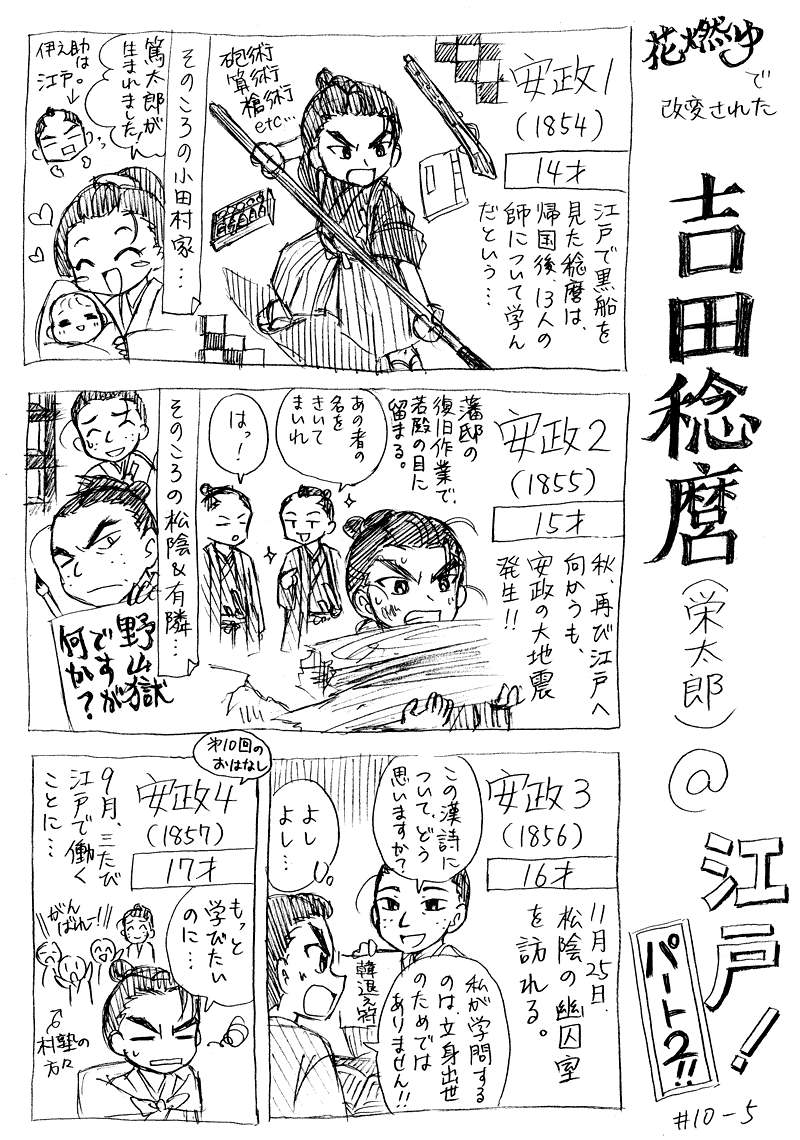 花燃ゆ
で
改変された
吉田稔麿
(栄太郎)
@
江戸！
パート2!!
#10-5
安政1
(1854)
14才
江戸で黒船を
見た稔麿は、
帰国後、13人の
師について学ん
だという…
砲術
算術
槍術
etc…
そのころの小田村家…
篤太郎が
生まれました
伊之助
は。
江戸。
安政2
(1855)
15才
秋、再び江戸へ
向かうも、
安政の大地震
発生!!
藩邸の
復旧作業で、
若殿の目に
留まる。
あの者の
名を
きいて
まいれ
はっ！
そのころの松陰&有隣…
野山獄
ですが
何か？
安政3
(1856)
16才
11月25日、
松陰の幽囚室
を訪れる。
この漢詩に
ついて、どう
思いますか？
よし
よし…
韓退之符
私が学問する
のは、立身出世
のためでは
ありません!!
第10回の
おはなし
安政4
(1857)
17才
9月、三たび
江戸で働く
ことに…
もっと
学びたい
のに…
がん
ばれー!
村塾の
方々